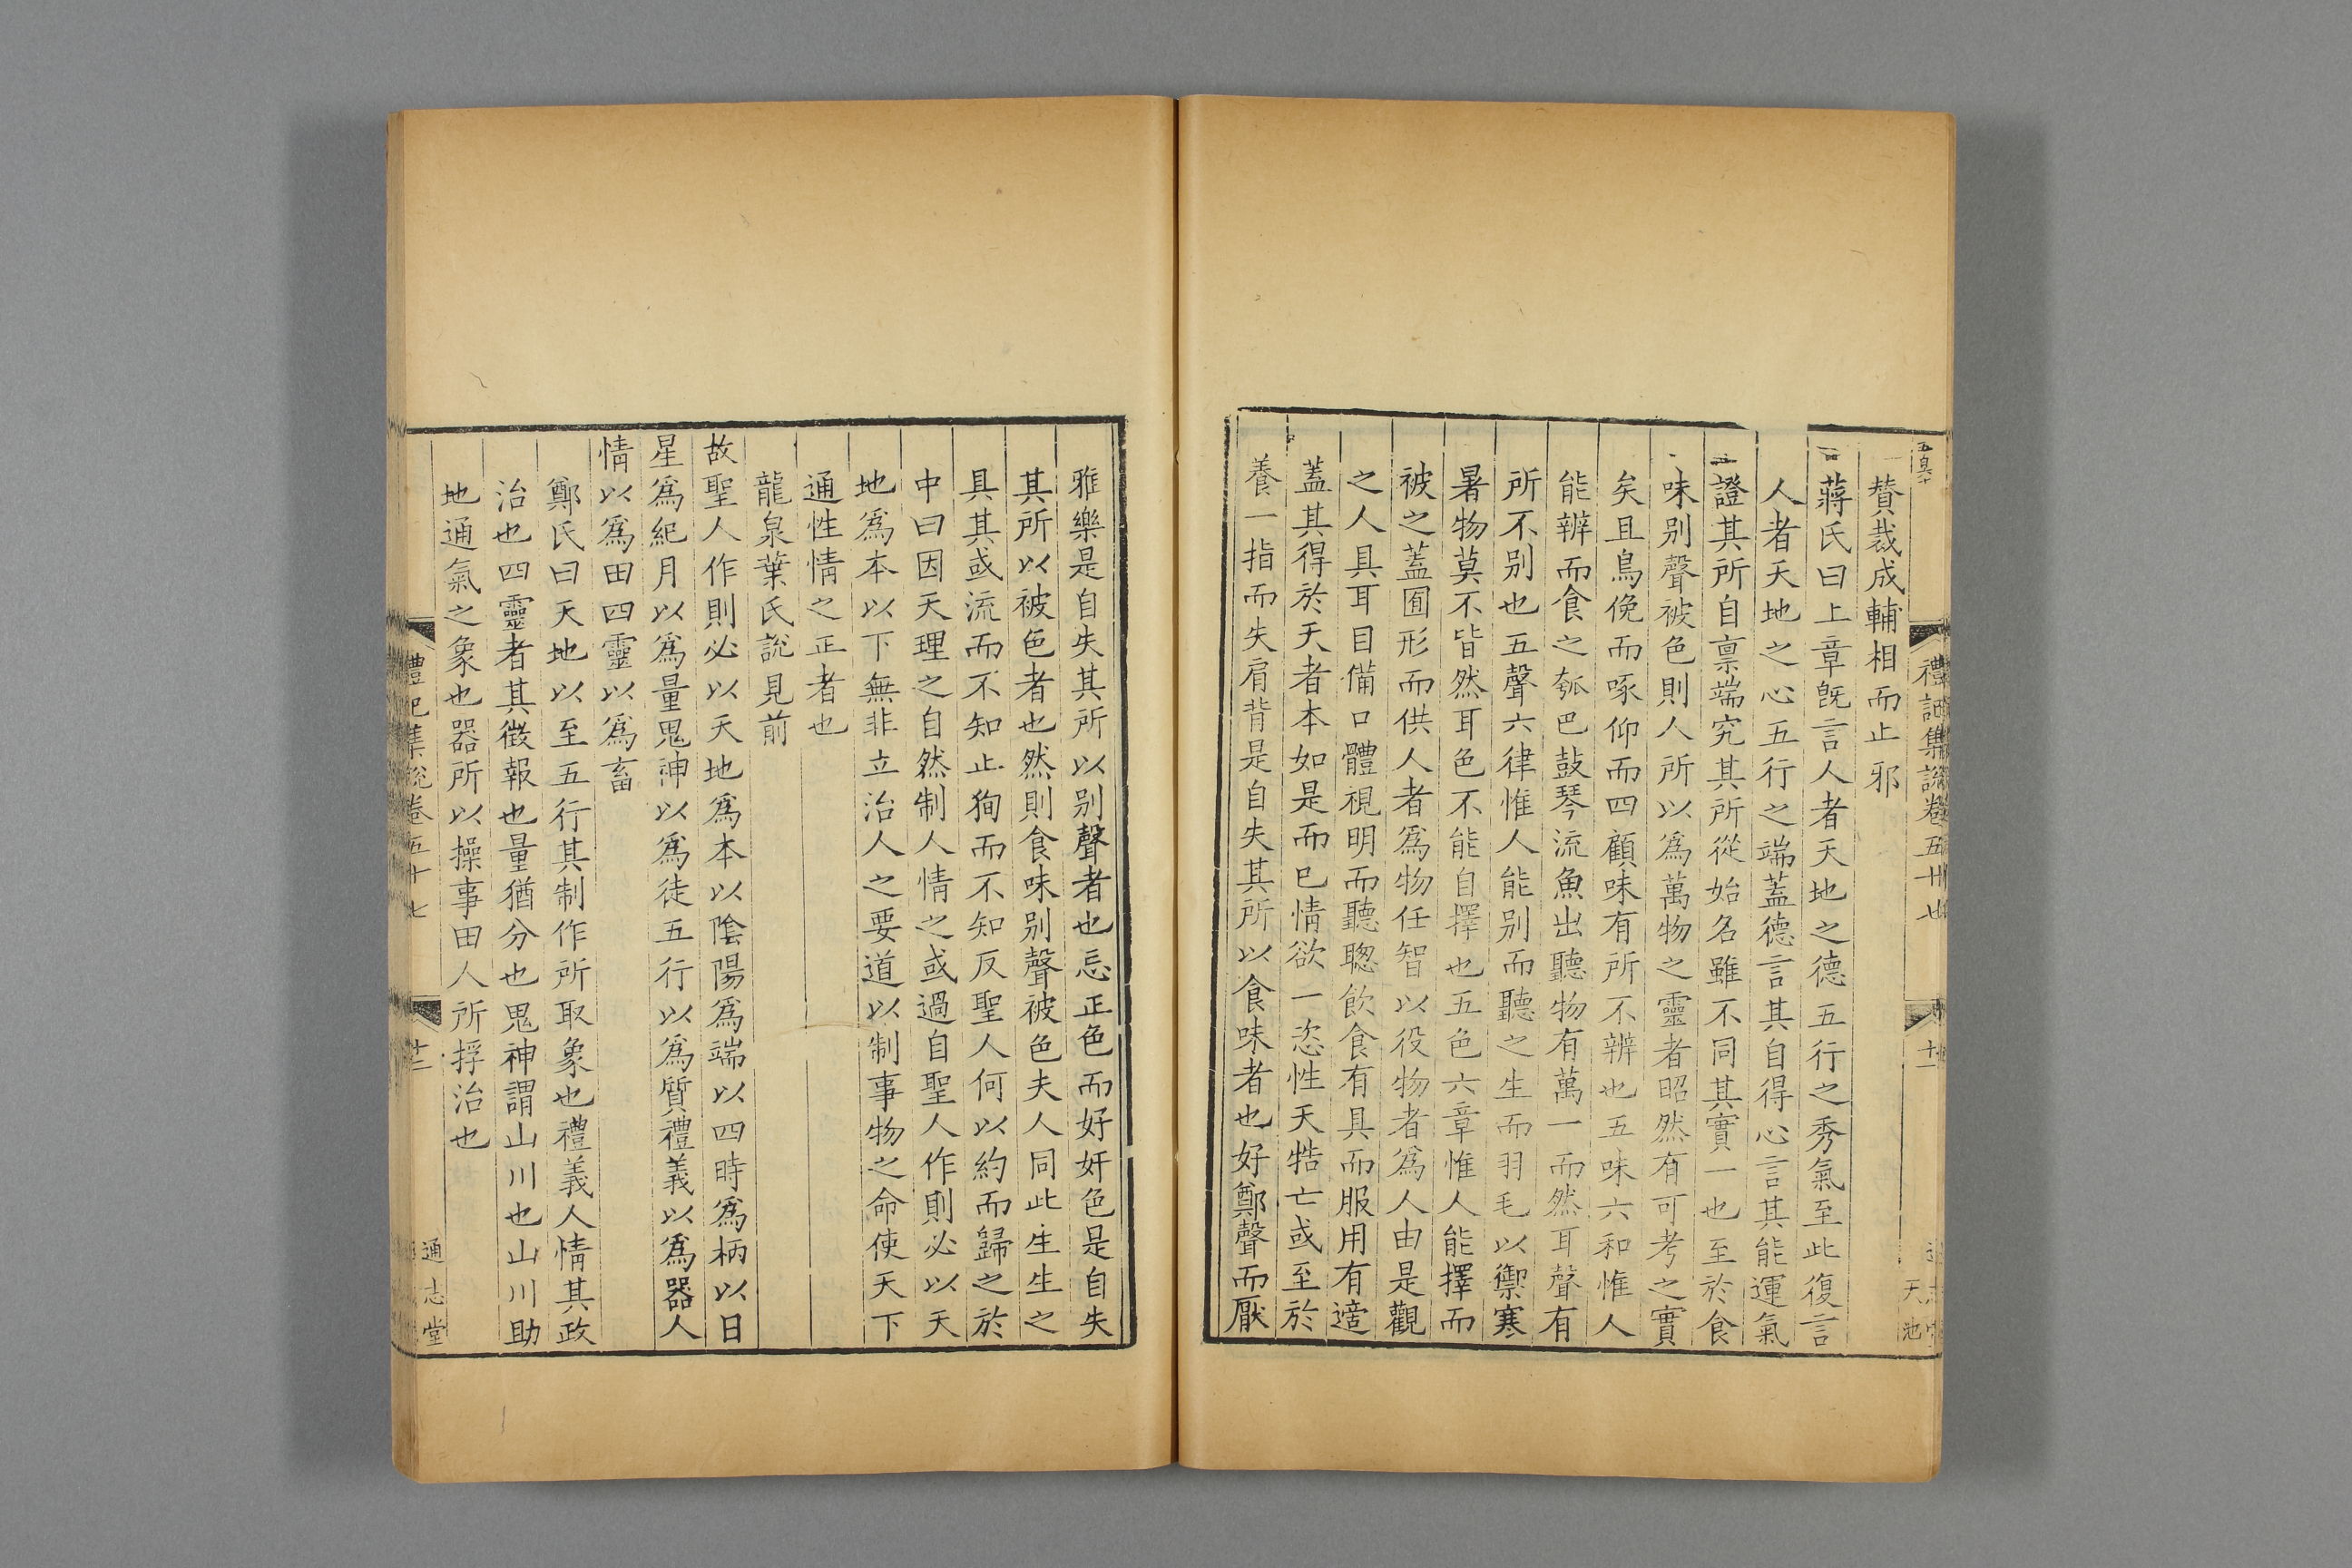 禮記集說卷五十七
十一
天池
贊裁成輔相而止邪
蔣氏曰上章旣言人者天地之德五行之秀氣至此復言
人者天地之心五行之端蓋德言其自得心言其能運氣
證其所自禀端究其所從始名雖不同其實一也至於食
味别聲被色則人所以爲萬物之靈者昭然有可考之實
矣且鳥俛而啄仰而四顧味有所不辨也五味六和惟人
能辨而食之瓠巴鼓琴流魚出聽物有萬一而然耳聲有
所不别也五聲六律惟人能别而聽之生而羽毛以禦寒
暑物莫不皆然耳色不能自擇也五色六章惟人能擇而
被之蓋囿形而供人者爲物任智以役物者爲人由是觀
之人具耳目備口體視明而聽聰飲食有具而服用有適
蓋其得於天者本如是而已情欲一恣性天牿亡或至於
養一指而失肩背是自失其所以食味者也好鄭聲而厭
雅樂是自失其所以别聲者也忘正色而好奸色是自失
其所以被色者也然則食味别聲被色夫人同此生生之
具其或流而不知止狥而不知反聖人何以約而歸之於
中曰因天理之自然制人情之或過自聖人作則必以天
地爲本以下無非立治人之要道以制事物之命使天下
通性情之正者也
龍泉葉氏說見前
故聖人作則必以天地爲本以陰陽爲端以四時爲柄以日
星爲紀月以爲量鬼神以爲徒五行以爲質禮義以爲器人
情以爲田四靈以爲畜
鄭氏曰天地以至五行其制作所取象也禮義人情其政
治也四靈者其徵報也量猶分也鬼神謂山川也山川助
地通氣之象也器所以操事田人所捊治也
禮記集說卷五十七
十二
通志堂